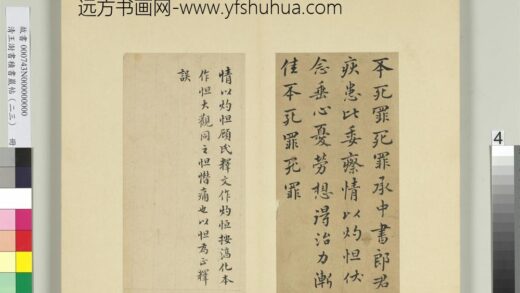 远方书画网-www.yfshuhua.com
丕死罪死罪承中書郎君
疾患比委瘵情以灼怛伏
念垂心憂勞想得治力漸
佳丕死罪死罪
情以灼怛顧氏釋文作灼恒按淳化本
作怛大觀同之怛憯痛也以怛為正釋
誤
故書 000743N00000000
清王澍書積書巖帖（二三） 冊
4